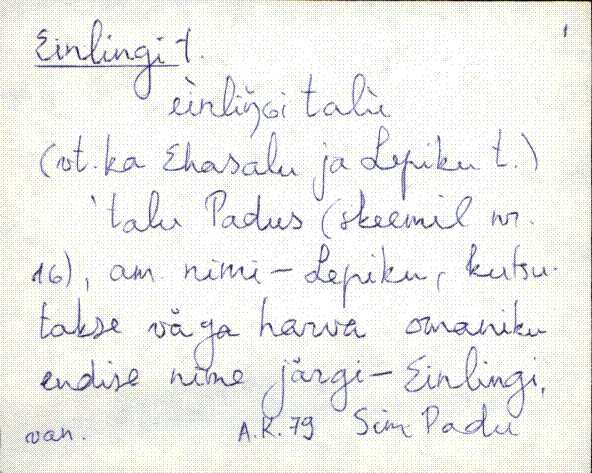 Einlingi t.
èinliŋ̆ɢi talù
(vt. ka Ehasalu ja Lepiku t.)
'talu Padus (skeemil nr.
16), am. nimi - Lepiku, kutsu-
takse väga harva omaniku
endise nime järgi - Einlingi,
van. A.K. 79 Sim Padu